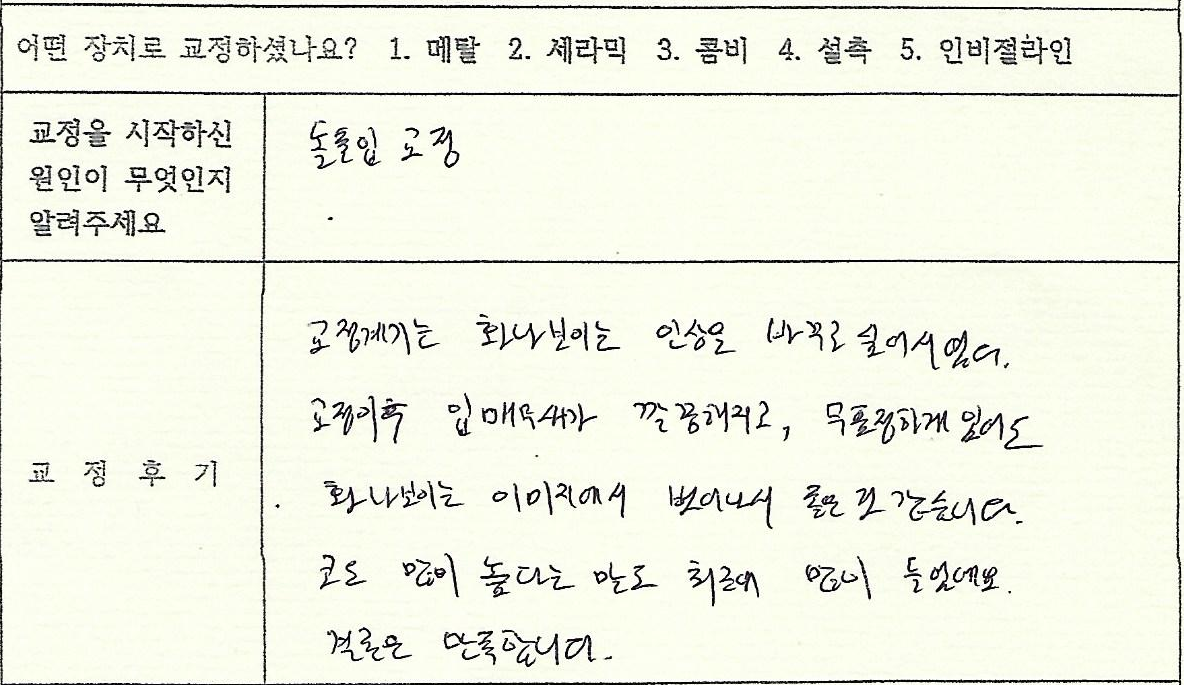 어떤 장치로 교정하셨나요? 1. 메탈 2. 세라믹 3. 콤비 4. 설측 5. 인비절라인
교정을 시작하신
원인이 무엇인지
알려주세요
돌출입 교정
교정후기
교정계기는 화나보이는 인상을 바꾸고 싶어서였다.
교정이후 입매무새가 깔끔해지고, 무표정하게 있어도
화나보이는 이미지에서 벗어나서 좋은것 같습니다.
코도 많이 높다는 말도 최근에 많이 들었네요.
결론은 만족합니다.